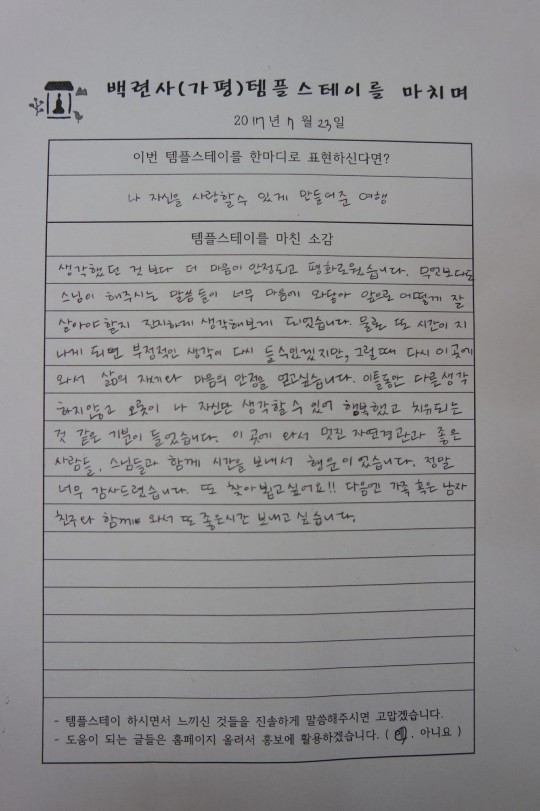 백련사(가평)템플스테이를 마치며
2017년 7월 23일
이번 템플스테이를 한마디로 표현하신다면?
나 자신을 사랑할수 있게 만들어준 여행
템플스테이를 마친 소감
생각했던 것보다 더 마음이 안정되고 평화로웠습니다. 무엇보다도
스님이 해주시는 말씀들이 너무 마음에 와닿아 앞으로 어떻게 잘
살아야할지 진지하게 생각해보게 되었습니다. 물론 또 시간이 지
나게 되면 부정적인 생각이 다시 들수있겠지만, 그럴때 다시 이곳에
와서 삶의 자세와 마음의 안정을 얻고싶습니다. 이틀동안 다른생각
하지않고 오롯이 나 자신만 생각할수 있어 행복했고 치유되는
것 같은 기분이 들었습니다. 이곳에 와서 멋진 자연경관과 좋은
사람들, 스님들과 함께 시간을 보내서 행운이었습니다. 정말
너무 감사드렸습니다. 또 찾아뵙고싶어요!! 다음엔 가족 혹은 남자
친구와 함께 와서 또 좋은시간 보내고 싶습니다.
- 템플스테이 하시면서 느끼신 것들을 진솔하게 말씀해주시면 고맙겠습니다.
- 도움이 되는 글들은 홈페이지 올려서 홍보에 활용하겠습니다. ( 예 , 아니요 )